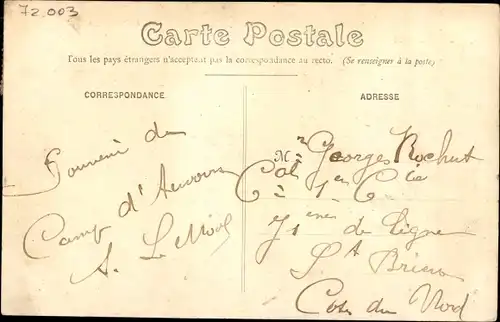 72.003
Carte Postale
Tous les pays étrangers n'acceptent pas la correspondance au recto. (Se renseigner à la poste)
CORRESPONDANCE
ADRESSE
Souvenir du
Camp d'Auvours
A. Le
Mr Georges Rochut
Cal 1re Cie
71eme de Ligne
St Brieuc
Cotes du Nord